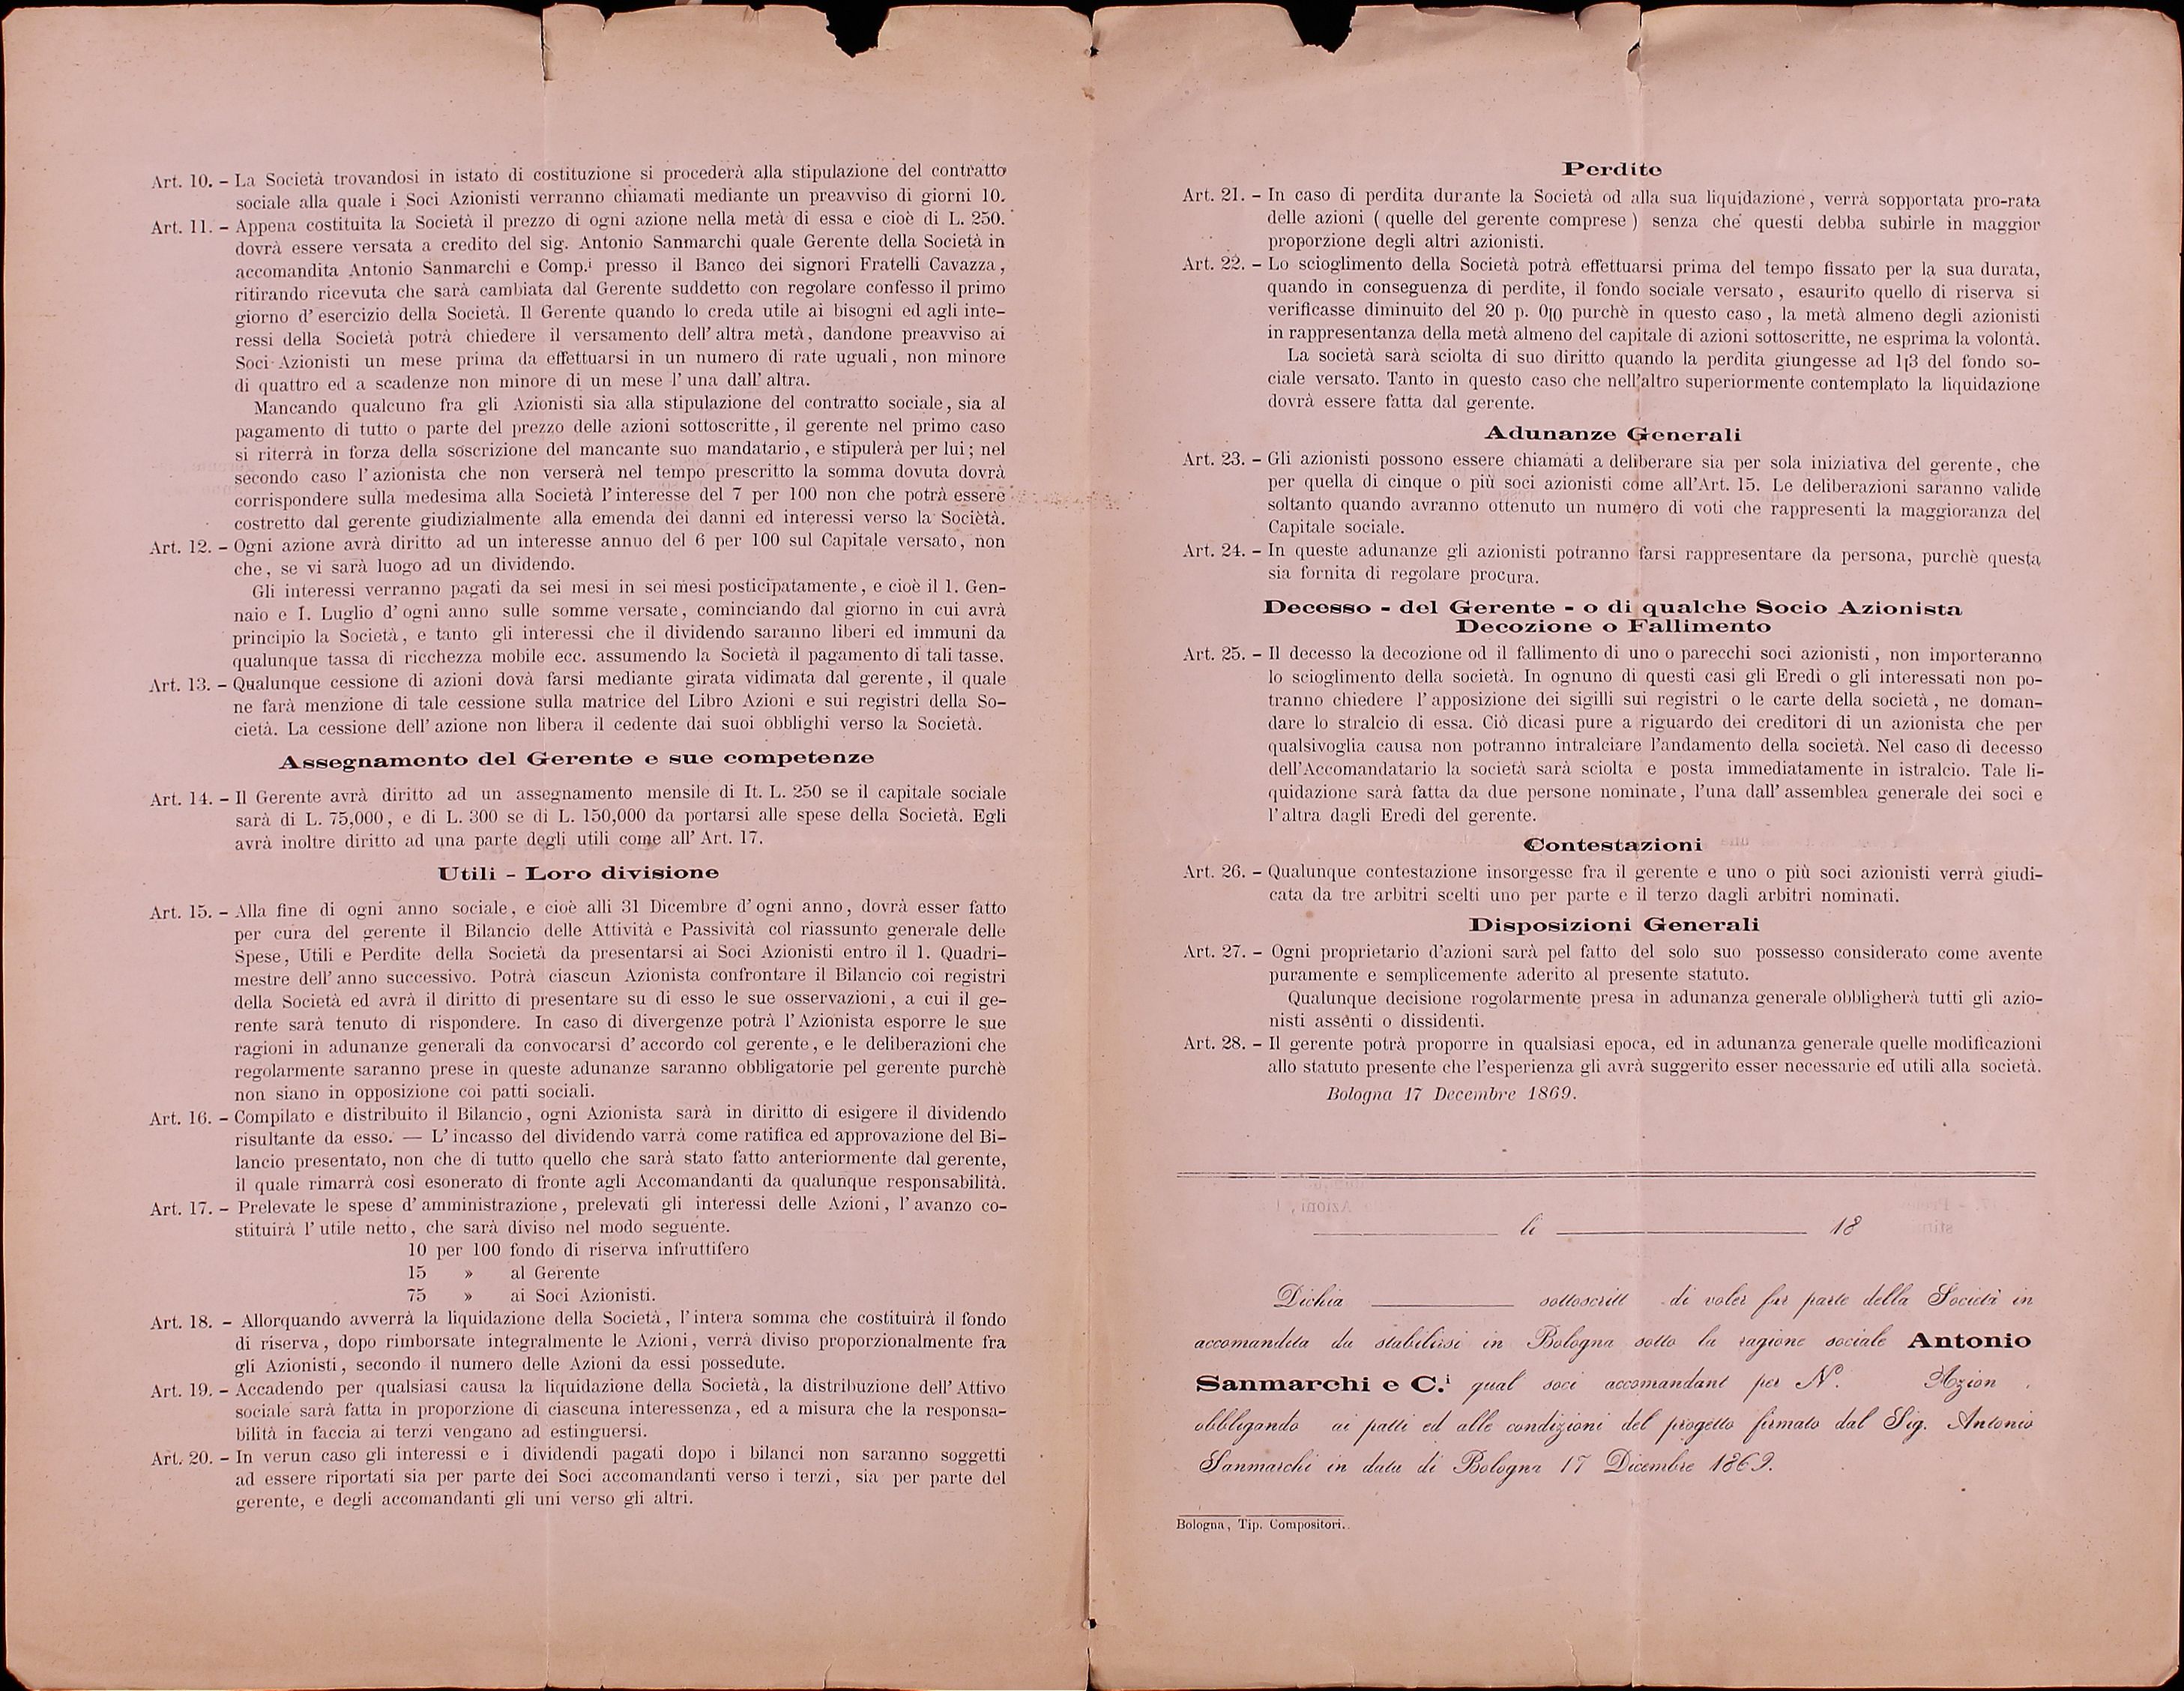 Art. 10. – La Società trovandosi in istato di costituzione si procederà alla stipulazione del contratto
sociale alla quale i Soci Azionisti verranno chiamati mediante un preavviso di giorni 10.
Art. 11. – Appena costituita la Società il prezzo di ogni azione nella metà di essa e cioè di L. 250.
dovrà essere versata a credito del sig. Antonio Sanmarchi quale Gerente della Società in
accomandita Antonio Sanmarchi e Comp.i presso il Banco dei signori Fratelli Cavazza,
ritirando ricevuta che sarà cambiata dal Gerente suddetto con regolare confesso il primo
giorno d' esercizio della Società. Il Gerente quando lo creda utile ai bisogni ed agli inte–
ressi della Società potrà chiedere il versamento dell' altra metà, dandone preavviso ai
Soci Azionisti un mese prima da effettuarsi in un numero di rate uguali, non minore
di quattro ed a scadenze non minore di un mese l' una dall' altra.
Mancando qualcuno fra gli Azionisti sia alla stipulazione del contratto sociale, sia al
pagamento di tutto o parte del prezzo delle azioni sottoscritte, il gerente nel primo caso
si riterrà in forza della soscrizione del mancante suo mandatario, e stipulerà per lui; nel
secondo caso l' azionista che non verserà nel tempo prescritto la somma dovuta dovrà
corrispondere sulla medesima alla Società l'interesse del 7 per 100 non che potrà essere
costretto dal gerente giudizialmente alla emenda dei danni ed interessi verso la Società.
Art. 12. – Ogni azione avrà diritto ad un interesse annuo del 6 per 100 sul Capitale versato, non
che, se vi sarà luogo ad un dividendo.
Gli interessi verranno pagati da sei mesi in sei mesi posticipatamente, e cioè il 1. Gen–
naio e I. Luglio d' ogni anno sulle somme versate, cominciando dal giorno in cui avrà
principio la Società, e tanto gli interessi che il dividendo saranno liberi ed immuni da
qualunque tassa di ricchezza mobile ecc. assumendo la Società il pagamento di tali tasse.
Art. 13. – Qualunque cessione di azioni dovà farsi mediante girata vidimata dal gerente, il quale
ne farà menzione di tale cessione sulla matrice del Libro Azioni e sui registri della So–
cietà. La cessione dell' azione non libera il cedente dai suoi obblighi verso la Società.
Assegnamento del Gerente e sue competenze
Art. 14. – Il Gerente avrà diritto ad un assegnamento mensile di It. L. 250 se il capitale sociale
sarà di L. 75,000, e di L. 300 se di L. 150,000 da portarsi alle spese della Società. Egli
avrà inoltre diritto ad una parte degli utili come all' Art. 17.
Utili – Loro divisione
Art. 15. – Alla fine di ogni anno sociale, e cioè alli 31 Dicembre d' ogni anno, dovrà esser fatto
per cura del gerente il Bilancio delle Attività e Passività col riassunto generale delle
Spese, Utili e Perdite della Società da presentarsi ai Soci Azionisti entro il 1. Quadri–
mestre dell' anno successivo. Potrà ciascun Azionista confrontare il Bilancio coi registri
della Società ed avrà il diritto di presentare su di esso le sue osservazioni, a cui il ge–
rente sarà tenuto di rispondere. In caso di divergenze potrà l'Azionista esporre le sue
ragioni in adunanze generali da convocarsi d' accordo col gerente, e le deliberazioni che
regolarmente saranno prese in queste adunanze saranno obbligatorie pel gerente purchè
non siano in opposizione coi patti sociali.
Art. 16. – Compilato e distribuito il Bilancio, ogni Azionista sarà in diritto di esigere il dividendo
risultante da esso. — L' incasso del dividendo varrà come ratifica ed approvazione del Bi–
lancio presentato, non che di tutto quello che sarà stato fatto anteriormente dal gerente,
il quale rimarrà così esonerato di fronte agli Accomandanti da qualunque responsabilità.
Art. 17. – Prelevate le spese d' amministrazione, prelevati gli interessi delle Azioni, l' avanzo co–
stituirà l' utile netto, che sarà diviso nel modo seguente.
10 per 100 fondo di riserva infruttifero
15 » al Gerente
75 » ai Soci Azionisti.
Art. 18. – Allorquando avverrà la liquidazione della Società, l'intera somma che costituirà il fondo
di riserva, dopo rimborsate integralmente le Azioni, verrà diviso proporzionalmente fra
gli Azionisti, secondo il numero delle Azioni da essi possedute.
Art. 19. – Accadendo per qualsiasi causa la liquidazione della Società, la distribuzione dell' Attivo
sociale sarà fatta in proporzione di ciascuna interessenza, ed a misura che la responsa–
bilità in faccia ai terzi vengano ad estinguersi.
Art. 20. – In verun caso gli interessi e i dividendi pagati dopo i bilanci non saranno soggetti
ad essere riportati sia per parte dei Soci accomandanti verso i terzi, sia per parte del
gerente, e degli accomandanti gli uni verso gli altri.
Perdite
Art. 21. – In caso di perdita durante la Società od alla sua liquidazione, verrà sopportata pro-rata
delle azioni (quelle del gerente comprese) senza che questi debba subirle in maggior
proporzione degli altri azionisti.
Art. 22. – Lo scioglimento della Società potrà effettuarsi prima del tempo fissato per la sua durata,
quando in conseguenza di perdite, il fondo sociale versato, esaurito quello di riserva si
verificasse diminuito del 20 p. 0|0 purchè in questo caso, la metà almeno degli azionisti
in rappresentanza della metà almeno del capitale di azioni sottoscritte, ne esprima la volontà.
La società sarà sciolta di suo diritto quando la perdita giungesse ad 1|3 del fondo so–
ciale versato. Tanto in questo caso che nell'altro superiormente contemplato la liquidazione
dovrà essere fatta dal gerente.
Adunanze Generali
Art. 23. – Gli azionisti possono essere chiamati a deliberare sia per sola iniziativa del gerente, che
per quella di cinque o più soci azionisti come all'Art. 15. Le deliberazioni saranno valide
soltanto quando avranno ottenuto un numero di voti che rappresenti la maggioranza del
Capitale sociale.
Art. 24. – In queste adunanze gli azionisti potranno farsi rappresentare da persona, purchè questa
sia fornita di regolare procura.
Decesso – del Gerente – o di qualche Socio Azionista
Decozione o Fallimento
Art. 25. – Il decesso la decozione od il fallimento di uno o parecchi soci azionisti, non importeranno
lo scioglimento della società. In ognuno di questi casi gli Eredi o gli interessati non po–
tranno chiedere l' apposizione dei sigilli sui registri o le carte della società, ne doman–
dare lo stralcio di essa. Ciò dicasi pure a riguardo dei creditori di un azionista che per
qualsivoglia causa non potranno intralciare l'andamento della società. Nel caso di decesso
dell'Accomandatario la società sarà sciolta e posta immediatamente in istralcio. Tale li–
quidazione sarà fatta da due persone nominate, l'una dall' assemblea generale dei soci e
l'altra dagli Eredi del gerente.
Contestazioni
Art. 26. – Qualunque contestazione insorgesse fra il gerente e uno o più soci azionisti verrà giudi–
cata da tre arbitri scelti uno per parte e il terzo dagli arbitri nominati.
Disposizioni Generali
Art. 27. – Ogni proprietario d'azioni sarà pel fatto del solo suo possesso considerato come avente
puramente e semplicemente aderito al presente statuto.
Qualunque decisione rogolarmente presa in adunanza generale obbligherà tutti gli azio–
nisti assenti o dissidenti.
Art. 28. – Il gerente potrà proporre in qualsiasi epoca, ed in adunanza generale quelle modificazioni
allo statuto presente che l'esperienza gli avrà suggerito esser necessarie ed utili alla società.
Bologna 17 Decembre 1869.
li 18
Dichia sottoscritt di voler far parte della Società in
accomandita da stabilirsi in Bologna sotto la ragione sociale Antonio
Sanmarchi e C.i qual soci accomandant per N. Azion
obbligando ai patti ed alle condizioni del progetto firmato dal Sig. Antonio
Sanmarchi in data di Bologna 17 Dicembre 1869.
Bologna, Tip. Compositori.